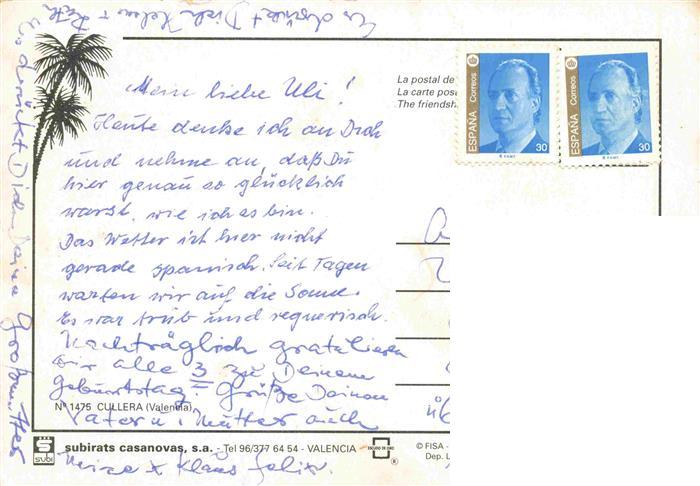 Mein liebe Uli!
Heute denke ich an Dich
und nehme an, daß Du
hier genau so glücklich
warst, wie ich es bin.
Das Wetter ist hier nicht
gerade spanisch. Seit Tagen
warten wir auf die Sonne.
Es war trüb und regnerisch.
Nachträglich gratulieren
wir alle 3 zu Deinem
Geburtstag! Grüße Deinen
Vater u. Mutter auch
Klaus Felix.
Es drückt Dich
Es drückt Dich Deine Großmutter
La postal de
La carte pos
The friendsh
Correos
ESPAÑA
30
Correos
ESPAÑA
30
Nº 1475 CULLERA (Valencia)
SUBI
subirats casanovas, s.a. - Tel 96/377 64 54 - VALENCIA
ESCUDO DE ORO
®
© FISA -
Dep. L